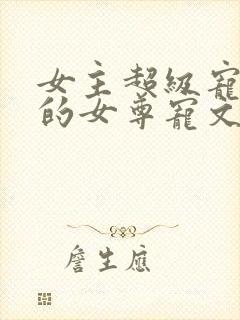 女主超级宠
的女尊宠文
詹生应